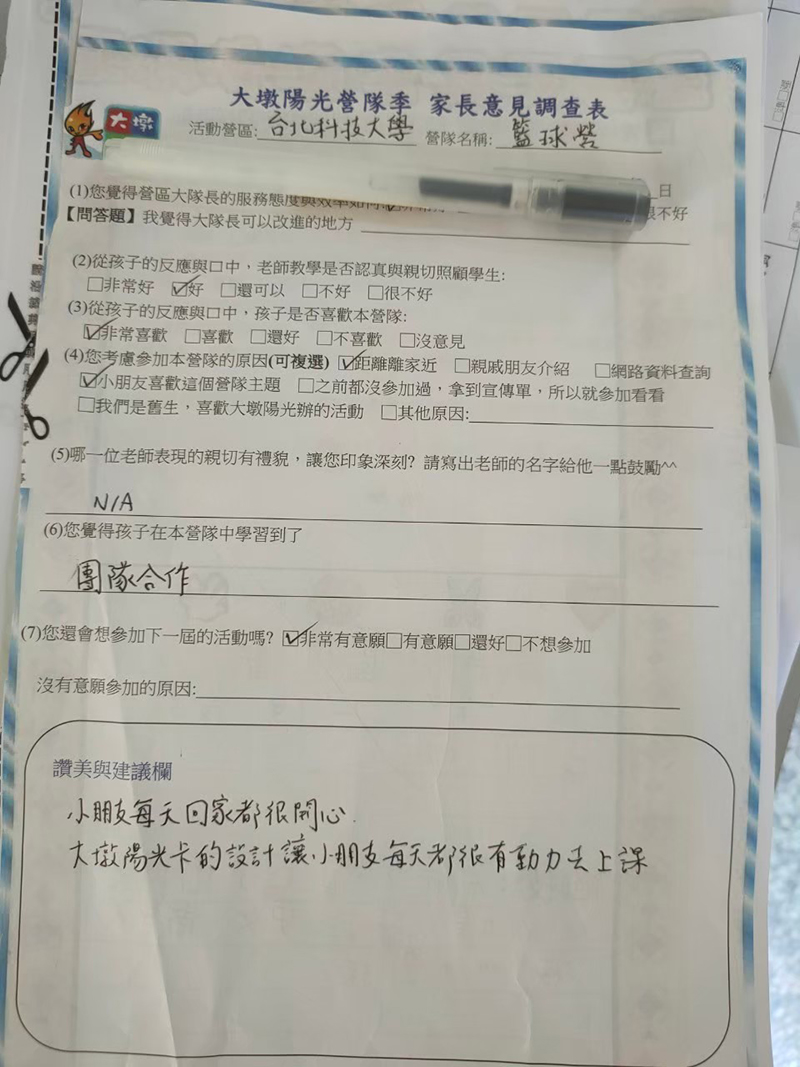 大墩陽光營隊季 家長意見調查表
大墩
活動營區:台北科技大學 營隊名稱:籃球營
日
(1)您覺得營區大隊長的服務態度與效率如何
很不好
【問答題】我覺得大隊長可以改進的地方
(2)從孩子的反應與口中，老師教學是否認真與親切照顧學生:
□非常好 ☑好 □還可以 □不好 □很不好
(3)從孩子的反應與口中，孩子是否喜歡本營隊:
☑非常喜歡 □喜歡 □還好 □不喜歡 □沒意見
(4)您考慮參加本營隊的原因(可複選) ☑距離離家近 □親戚朋友介紹 □網路資料查詢
☑小朋友喜歡這個營隊主題 □之前都沒參加過，拿到宣傳單，所以就參加看看
□我們是舊生，喜歡大墩陽光辦的活動 □其他原因:
(5)哪一位老師表現的親切有禮貌，讓您印象深刻? 請寫出老師的名字給他一點鼓勵^^
N/A
(6)您覺得孩子在本營隊中學習到了
團隊合作
(7)您還會想參加下一屆的活動嗎? ☑非常有意願□有意願□還好□不想參加
沒有意願參加的原因:
讚美與建議欄
小朋友每天回家都很開心.
大墩陽光卡的設計讓小朋友每天都很有動力去上課